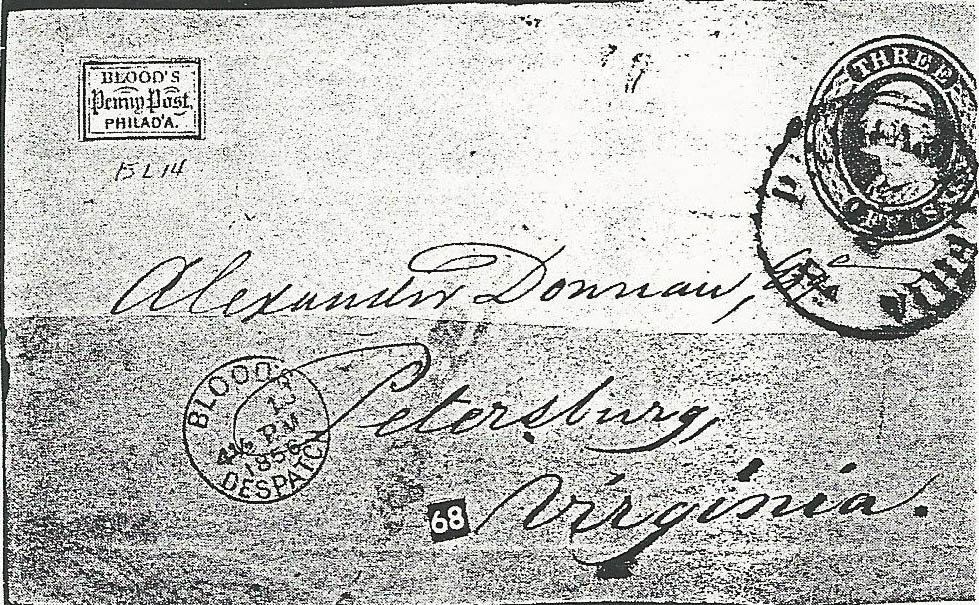 BLOOD'S
Penny Post,
PHILAD'A.
15 L 14
THREE
CENTS
Alexander Donnan,
BLOOD'S
13
4½ PM
1856
DESPATCH
Petersburg,
68
Virginia.